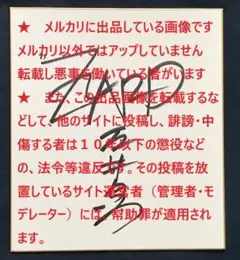 ★ メルカリに出品している画像です
メルカリ以外ではアップしていません
転載し悪事を働いている者がいます
★ また、この出品画像を転載するな
どして、他のサイトに投稿し、誹謗・中
傷する者は１０年以下の懲役など
の、法令等違反です。その投稿を放
置しているサイト運営者（管理者・モ
デレーター）には、幇助罪が適用され
ます。